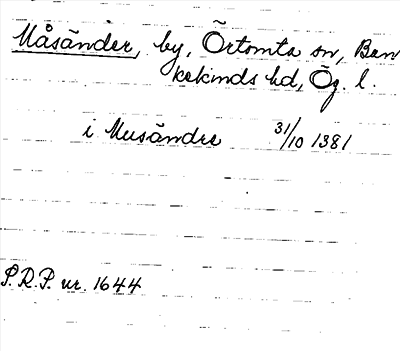 Måsänder, by, Örtomta sn, Ban
kekinds hd, Ög. l.
i Musändre 31/10 1381
S.R.P. nr. 1644